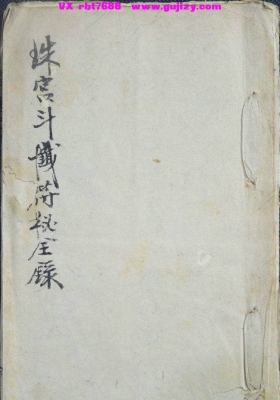 VX rbt7688 - www.gujizy.com
珠宫斗懺符秘全錄